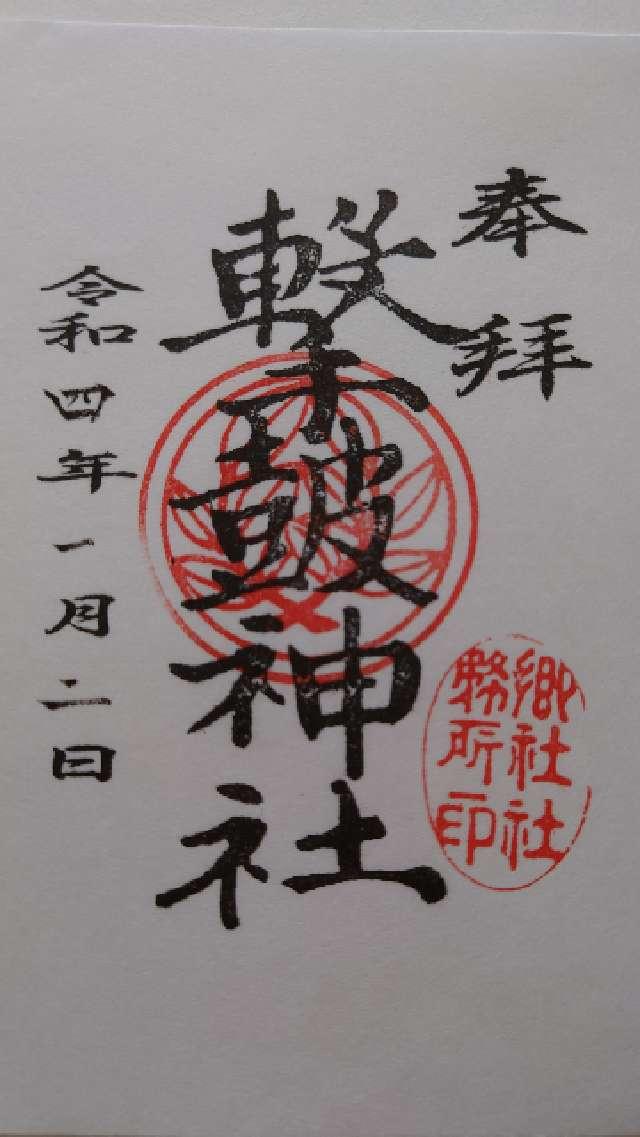 奉拝
撃皷神社
郷社社
務所印
令和四年一月二日